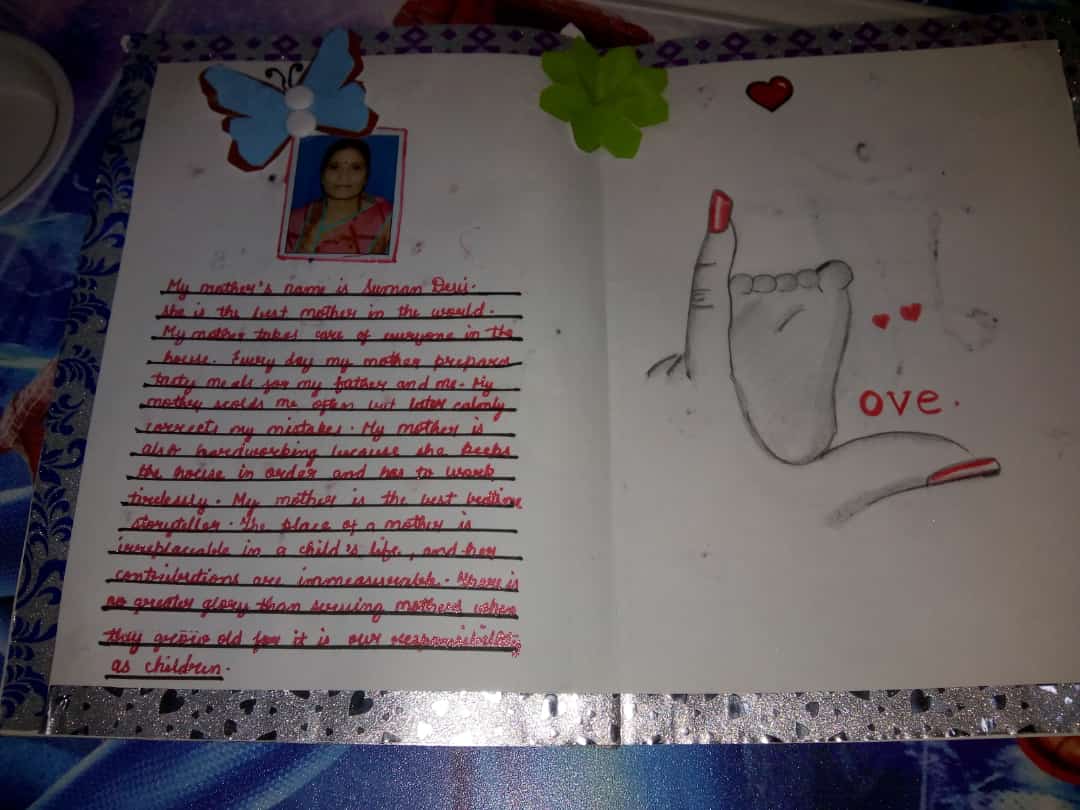 My mother's name is Suman Devi.
She is the best mother in the world.
My mother takes care of everyone in the
house. Every day my mother prepares
tasty meals for my father and me. My
mother scolds me often but later calmly
corrects my mistakes. My mother is
also hardworking because she keeps
the house in order and has to work
tirelessly. My mother is the best bedtime
storyteller. The place of a mother is
irreplaceable in a child's life, and her
contributions are immeasurable. There is
no greater glory than serving mothers when
they grow old for it is our responsibility
as children.
ove.